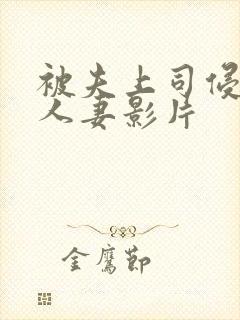 被夫上司侵
人妻影片
金鹰节